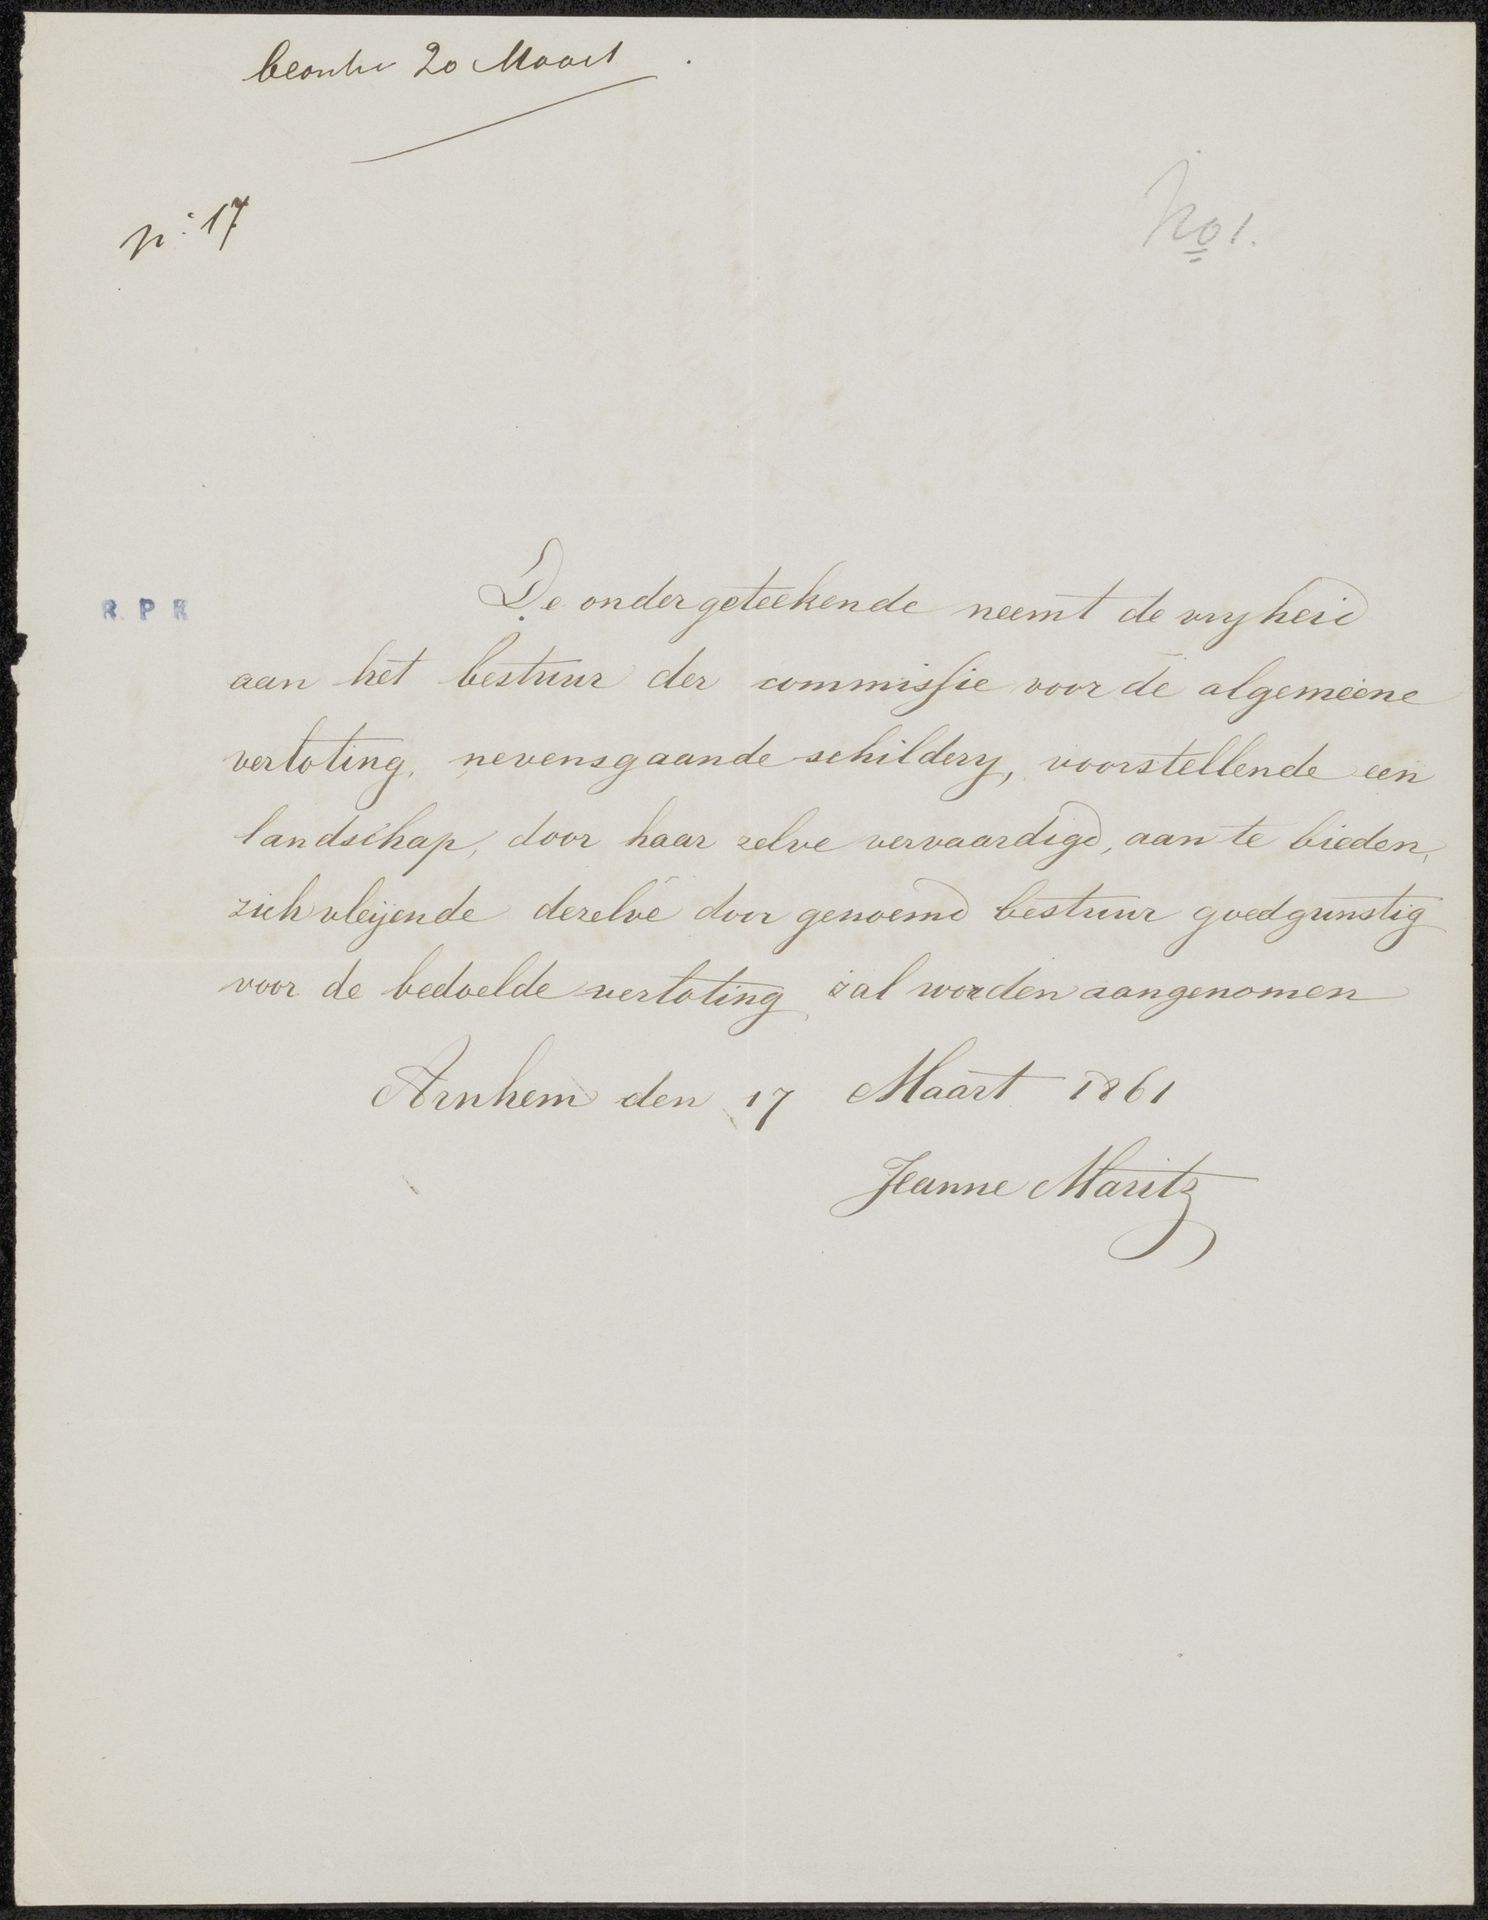 beantw 20 Maart
n: 17
No 1.
R. P. K
De ondergeteekende neemt de vryheid
aan het bestuur der commissie voor de algemeene
verloting, nevensgaande schildery, voorstellende een
landschap, door haar zelve vervaardigd, aan te bieden,
zich vleijende dezelve door genoemd bestuur goedgunstig
voor de bedoelde verloting zal worden aangenomen
Arnhem den 17 Maart 1861
Jeanne Maritz